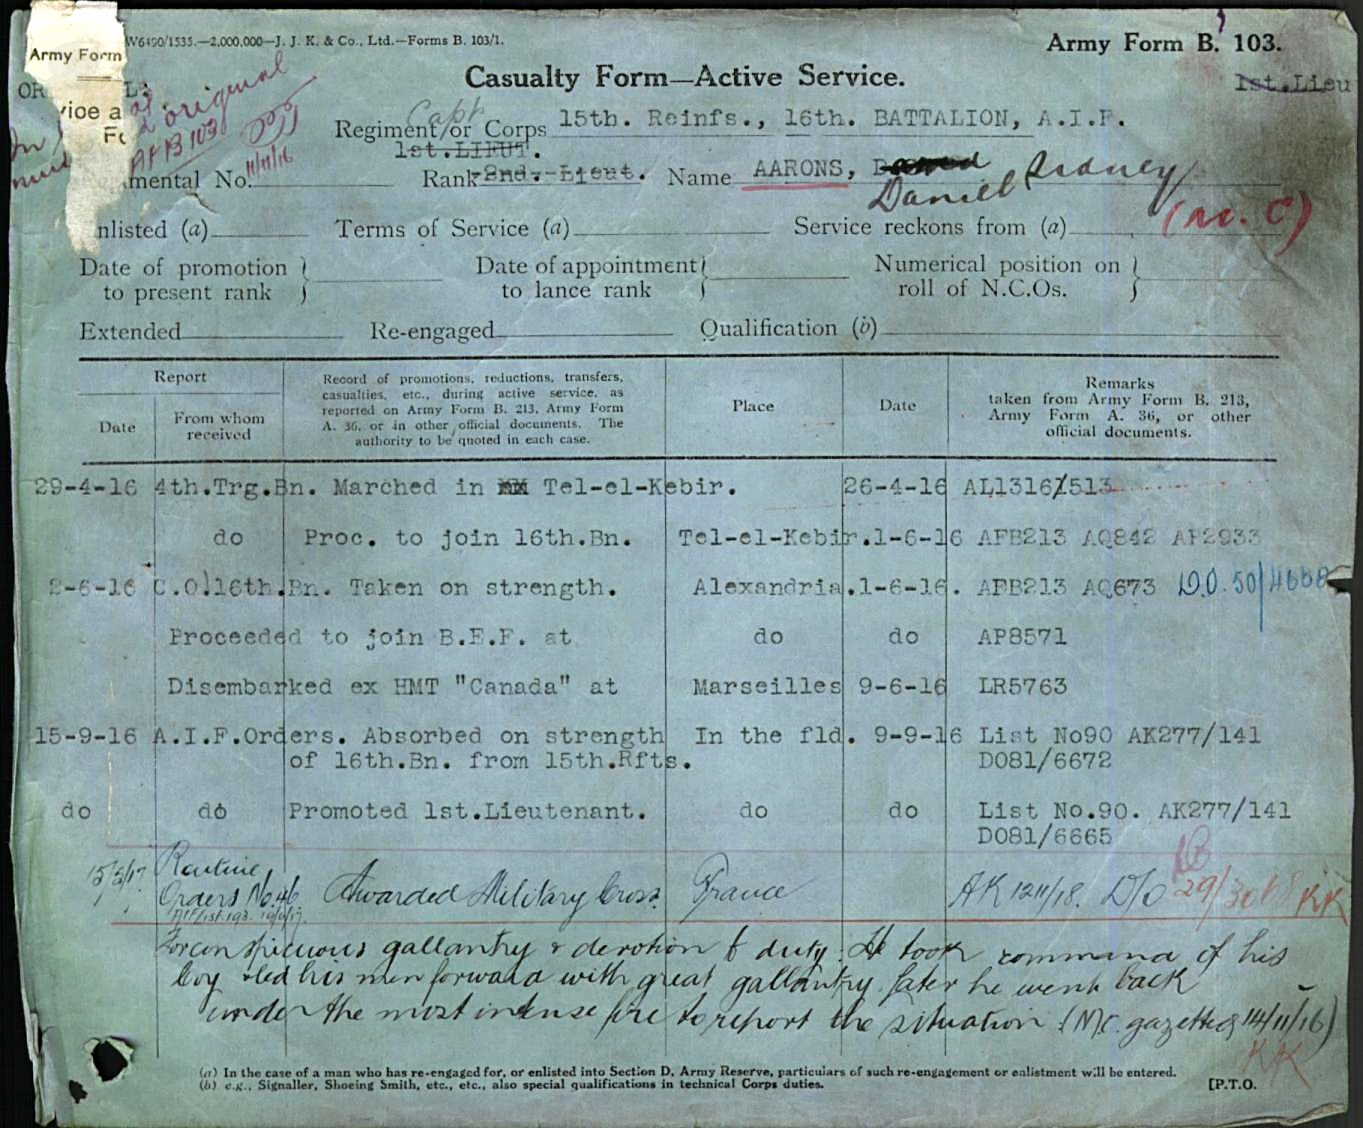 W6490/1535.—2,000,000—J. J. K. & Co., Ltd.—Forms B. 103/1.
Army Form B. 103.
Army Form
Casualty Form—Active Service.
1st.Lieu
original
AFB 103
11/11/16
Capt
Regiment or Corps 15th. Reinfs., 16th. BATTALION, A.I.F.
1st.LIEUT.
Regimental No. Rank 2nd. Lieut. Name AARONS, Daniel Sidney
(M.C)
Enlisted (a) Terms of Service (a) Service reckons from (a)
Date of promotion to present rank } Date of appointment to lance rank } Numerical position on roll of N.C.Os. }
Extended Re-engaged Qualification (b)
Report
Date
From whom received
Record of promotions, reductions, transfers,
casualties, etc., during active service, as
reported on Army Form B. 213, Army Form
A. 36, or in other official documents. The
authority to be quoted in each case.
Place
Date
Remarks
taken from Army Form B. 213,
Army Form A. 36, or other
official documents.
29-4-16 4th.Trg.Bn. Marched in Tel-el-Kebir. 26-4-16 AL1316/513
do Proc. to join 16th.Bn. Tel-el-Kebir. 1-6-16 AFB213 AQ842 AP2933
2-6-16 C.O.16th.Bn. Taken on strength. Alexandria. 1-6-16. AFB213 AQ673 D.O. 50/4668
Proceeded to join B.E.F. at do do AP8571
Disembarked ex HMT "Canada" at Marseilles 9-6-16 LR5763
15-9-16 A.I.F.Orders. Absorbed on strength In the fld. 9-9-16 List No90 AK277/141
of 16th.Bn. from 15th.Rfts. DO81/6672
do do Promoted 1st.Lieutenant. do do List No.90. AK277/141
DO81/6665
15/5/17 Routine
Orders No.46 Awarded Military Cross. France AK 1211/18. D/O 29/3068 KK
For conspicuous gallantry & devotion to duty. He took command of his
Coy & led his men forward with great gallantry. later he went back
under the most intense fire to report the situation. (M.C. gazetted 14/11/16)
KK
(a) In the case of a man who has re-engaged for, or enlisted into Section D, Army Reserve, particulars of such re-engagement or enlistment will be entered.
(b) e.g., Signaller, Shoeing Smith, etc., etc., also special qualifications in technical Corps duties.
[P.T.O.